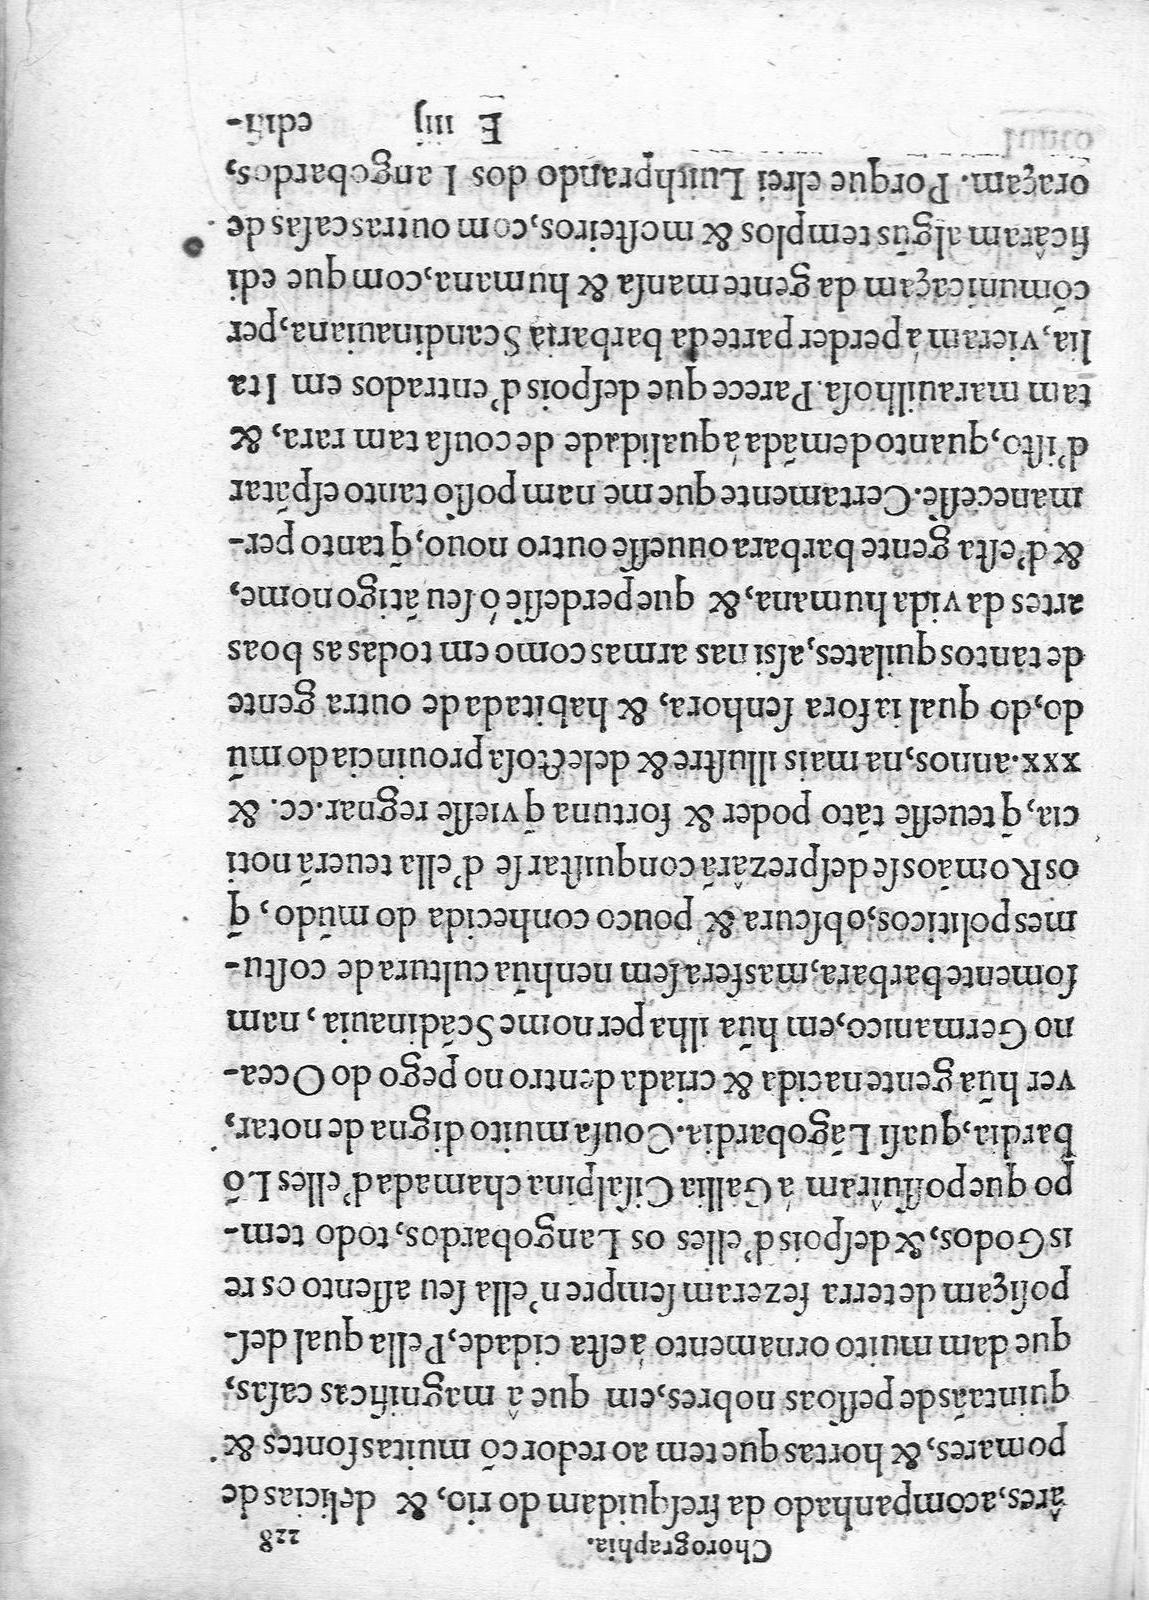 Chorographia. 228
âres, acompanhado da freſquidam do rio, & delicias de
pomares, & hortas que tem ao redor cõ muitas fontes &
quintaãs de peſſoas nobres, em que â magnificas caſas,
que dam muito ornamento á eſta cidade, Pella qual deſ-
poſiçam de terra fezeram ſempre n'ella ſeu aſſento os re
is Godos, & deſpois d'elles os Langobardos, todo tem-
po que poſſuîram á Gallia Ciſalpina chamada d'elles Lõ
bardia, quaſi Lãgobardia. Couſa muito digna de notar,
ver hũa gente nacida & criada dentro no pego do Ocea-
no Germanico, em hũa ilha per nome Scãdinauia, nam
ſomente barbara, mas fera ſem nenhũa cultura de coſtu-
mes politicos, obſcura & pouco conhecida do mũdo, q̃
os Romãos ſe deſprezârã conquiſtar ſe d'ella teuerã noti
cia, q̃ teueſſe tãto poder & fortuna q̃ vieſſe regnar.cc. &
xxx.annos, na mais illuſtre & delectoſa prouincia do mũ
do, do qual ia fora ſenhora, & habitada de outra gente
de tantos quilates, aſsi nas armas como em todas as boas
artes da vida humana, & que perdeſſe ó ſeu ãtigo nome,
& d'eſta gente barbara ouueſſe outro nouo, q̃ tanto per-
maneceſſe. Certamente que me nam poſſo tanto eſpãtar
d'iſto, quanto demãda á qualidade de couſa tam rara, &
tam marauilhoſa. Parece que deſpois d'entrados em Ita
lia, vieram á perder parte da barbaria Scandinauiana, per
cõmunicaçam da gente manſa & humana, com que edi
ficâram algũs templos & moſteiros, com outras caſas de
oraçam. Porque elrei Luithprando dos Langobardos,
E iiij edifi-